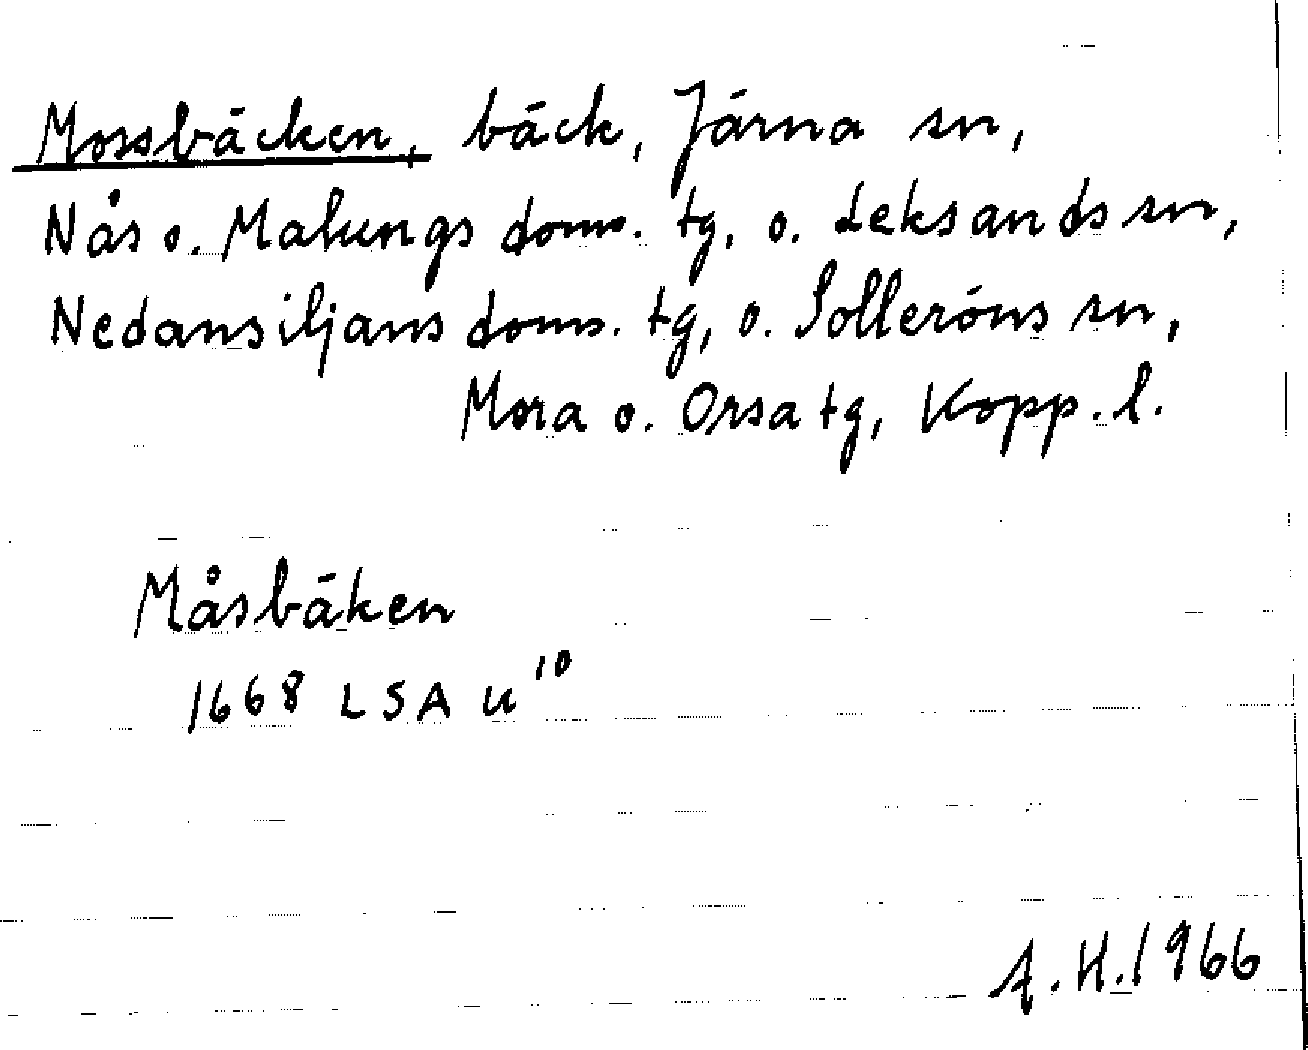 Mossbäcken, bäck, Järna sn,
Nås o. Malungs doms. tg, o. Leksands sn,
Nedansiljans doms. tg, o. Solleröns sn,
Mora o. Orsa tg, Kopp. l.
Måsbäken
1668 LSA U¹⁰
A. H. 1966